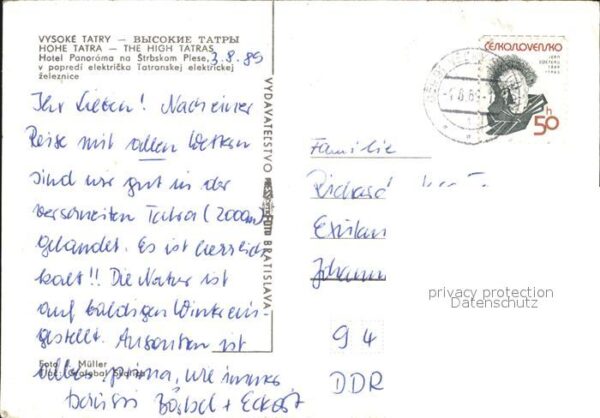 VYSOKÉ TATRY – ВЫСОКИЕ ТАТРЫ
HOHE TATRA – THE HIGH TATRAS
Hotel Panoráma na Štrbskom Plese,
v popredí električka Tatranskej elektrickej
železnice
3.8.89
Ihr Lieben! Nach einer
Reise mit allen Wettern
sind wir gut in der
verschneiten Tatra (2000m)
gelandet. Es ist herrlich
kalt!! Die Natur ist
auf baldigen Winter ein-
gestellt. Ansonsten ist
alles prima, wie immer
Bärbel + Eckart
Foto: Müller
VYDAVATEĽSTVO
BRATISLAVA
ČESKOSLOVENSKO
50 h
Familie
Richard
Johann
94
DDR
privacy protection
Datenschutz